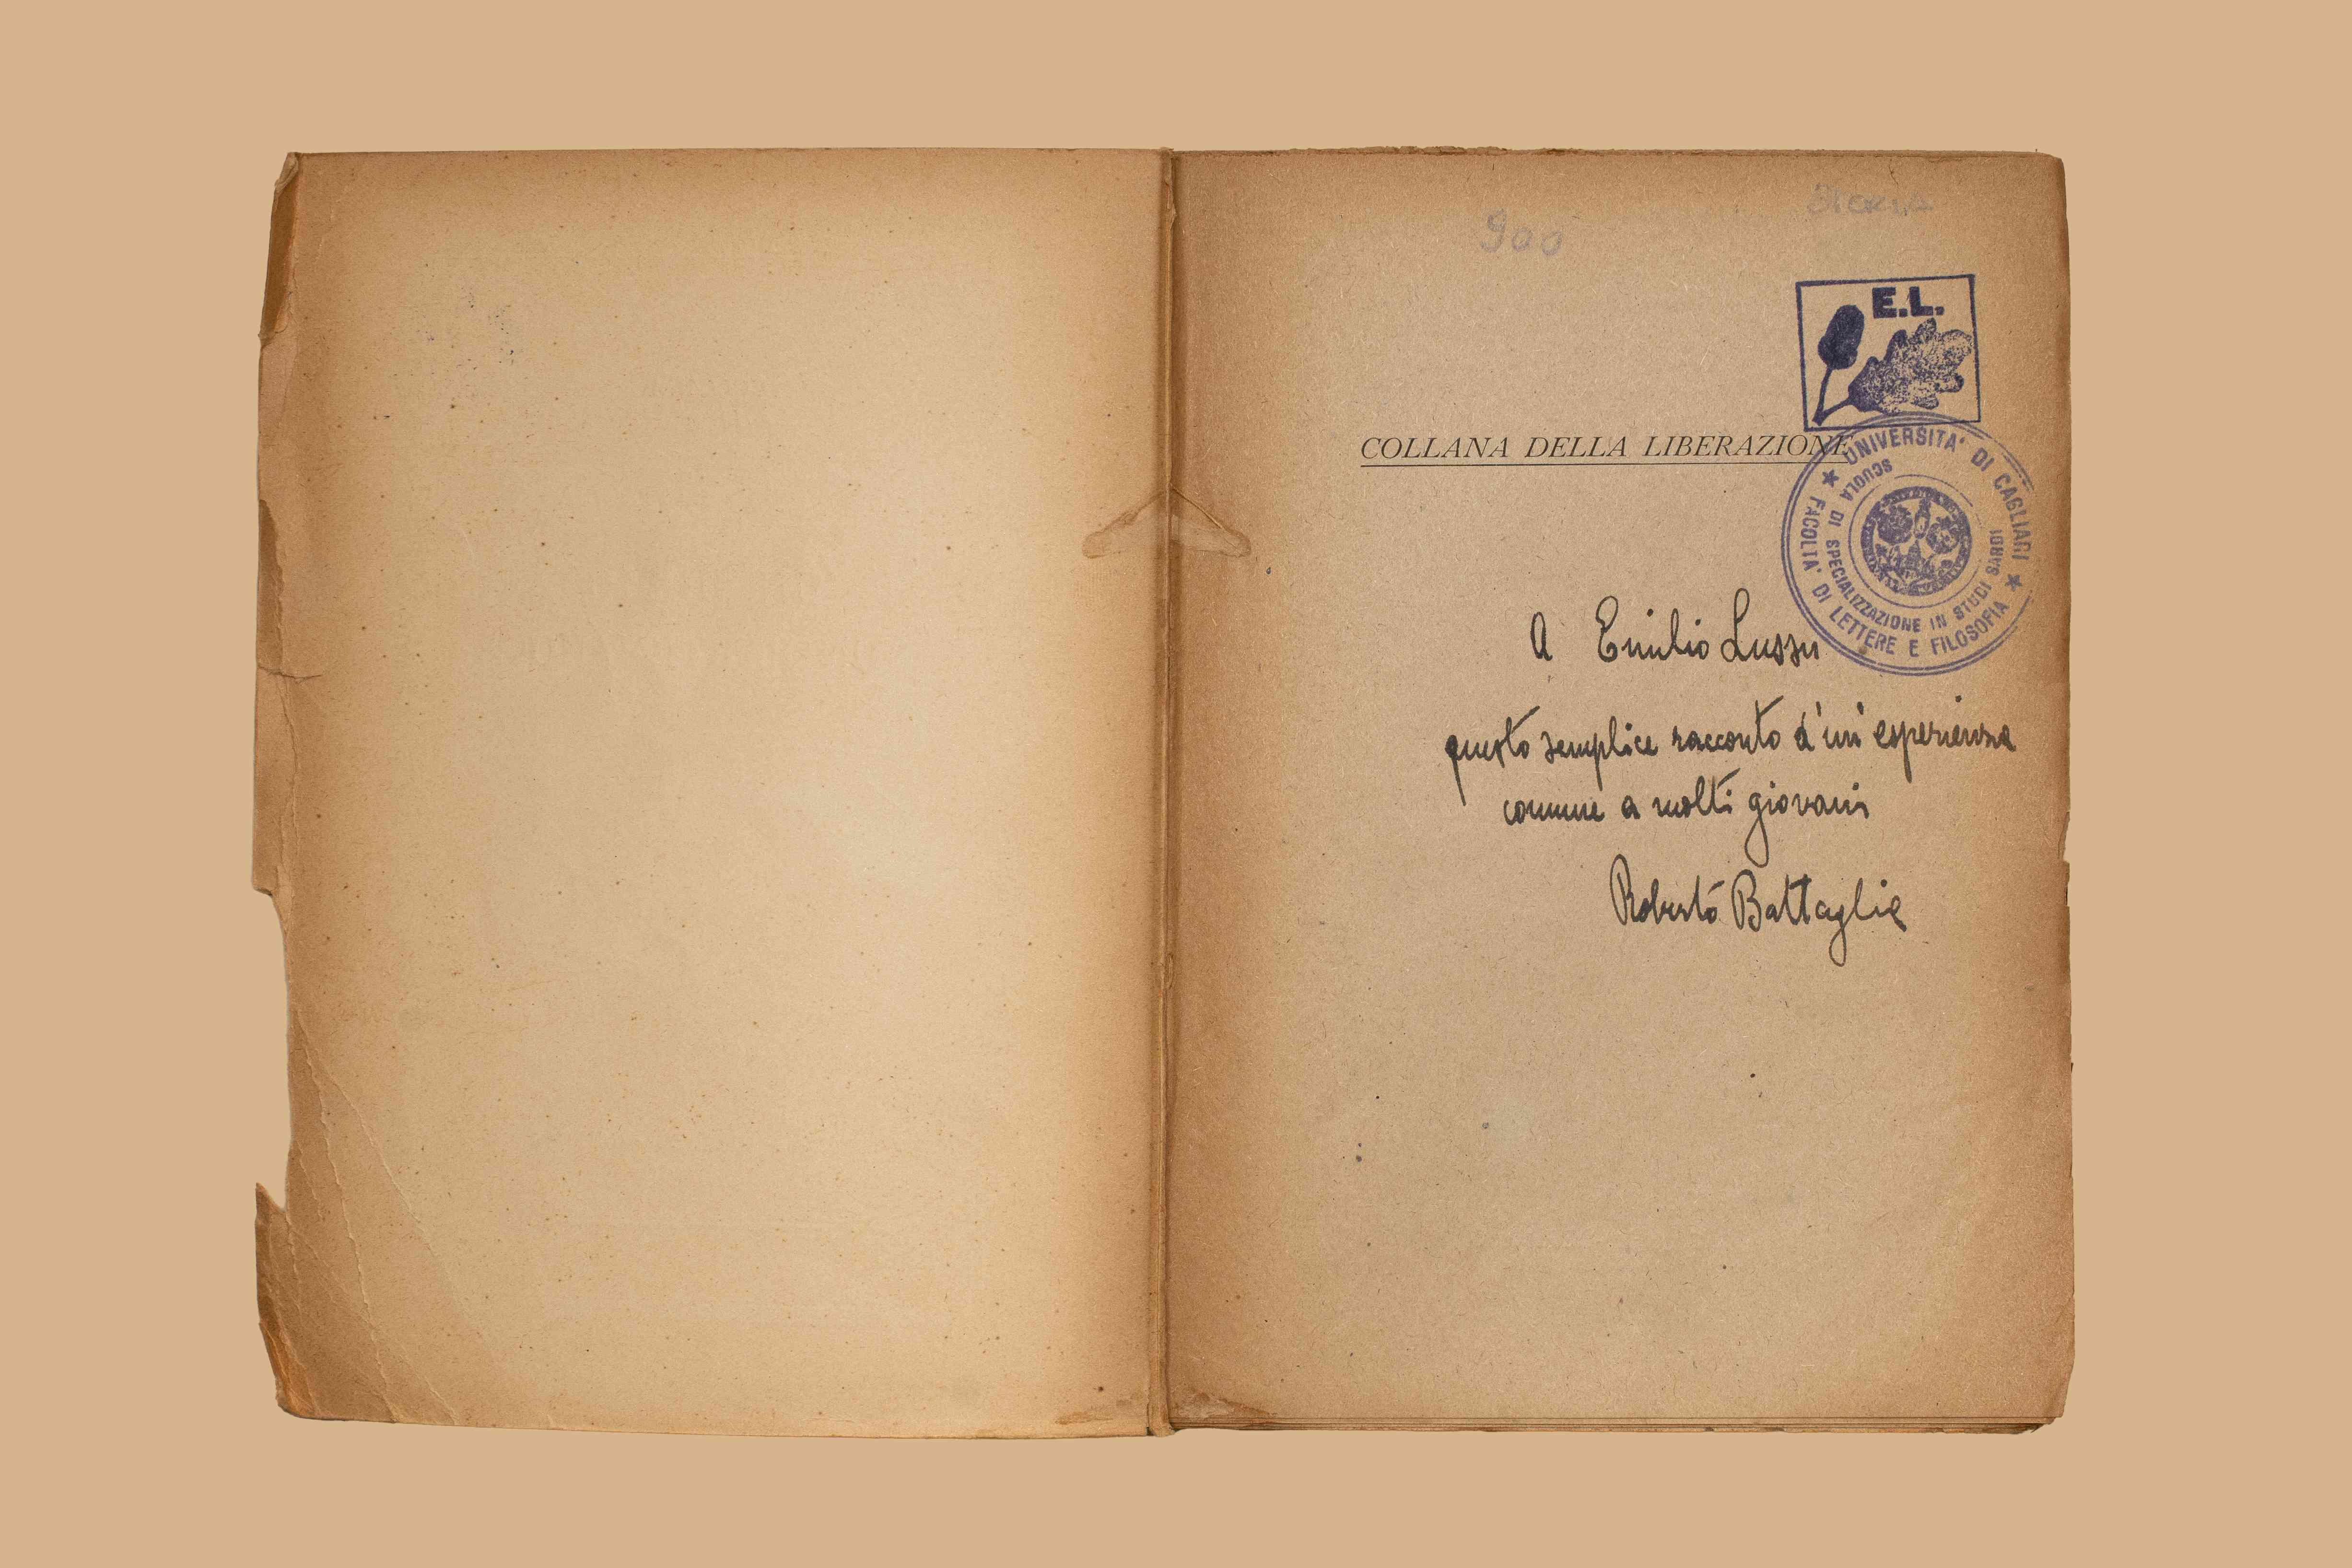 900
STORIA
E.L.
COLLANA DELLA LIBERAZIONE
★ UNIVERSITA' DI CAGLIARI ★
FACOLTA' DI LETTERE E FILOSOFIA
SCUOLA DI SPECIALIZZAZIONE IN STUDI SARDI
A Emilio Lussu
questo semplice racconto d'un'esperienza
comune a molti giovani
Roberto Battaglia